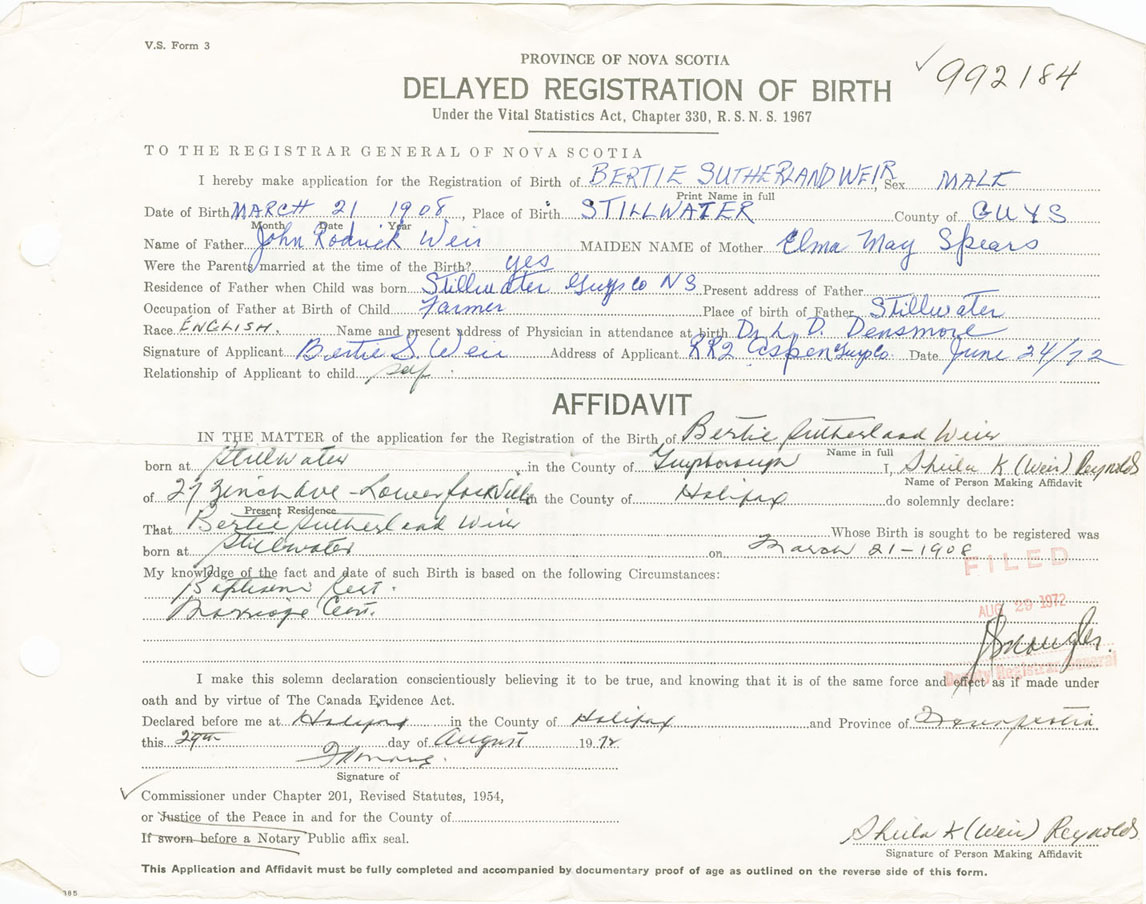 V.S. Form 3
PROVINCE OF NOVA SCOTIA
992184
DELAYED REGISTRATION OF BIRTH
Under the Vital Statistics Act, Chapter 330, R.S.N.S. 1967
TO THE REGISTRAR GENERAL OF NOVA SCOTIA
I hereby make application for the Registration of Birth of BERTIE SUTHERLAND WEIR, Sex MALE
Print Name in full
Date of Birth MARCH 21 1908, Place of Birth STILLWATER County of GUYS
Month Date Year
Name of Father John Rodrick Weir MAIDEN NAME of Mother Elma May Spears
Were the Parents married at the time of the Birth? yes
Residence of Father when Child was born Stillwater Guys co N S Present address of Father
Occupation of Father at Birth of Child Farmer Place of birth of Father Stillwater
Race ENGLISH. Name and present address of Physician in attendance at birth Dr L. D. Densmore
Signature of Applicant Bertie S. Weir Address of Applicant RR2 Aspen Guy Co. Date June 24/72
Relationship of Applicant to child self
AFFIDAVIT
IN THE MATTER of the application for the Registration of the Birth of Bertie Sutherland Weir
Name in full
born at Stillwater in the County of Guysborough I, Sheila K (Weir) Reynolds
Name of Person Making Affidavit
of 27 Zinck Ave - Lower Sackville in the County of Halifax do solemnly declare:
Present Residence
That Bertie Sutherland Weir Whose Birth is sought to be registered was
born at Stillwater on March 21-1908
My knowledge of the fact and date of such Birth is based on the following Circumstances:
FILED
Baptism Cert.
Marriage Cert.
AUG 29 1972
Deputy Registrar General
I make this solemn declaration conscientiously believing it to be true, and knowing that it is of the same force and effect as if made under
oath and by virtue of The Canada Evidence Act.
Declared before me at Halifax in the County of Halifax and Province of Nova Scotia
this 29th day of August 1972
Signature of
Commissioner under Chapter 201, Revised Statutes, 1954,
or Justice of the Peace in and for the County of
If sworn before a Notary Public affix seal.
Sheila K (Weir) Reynolds
Signature of Person Making Affidavit
This Application and Affidavit must be fully completed and accompanied by documentary proof of age as outlined on the reverse side of this form.
385